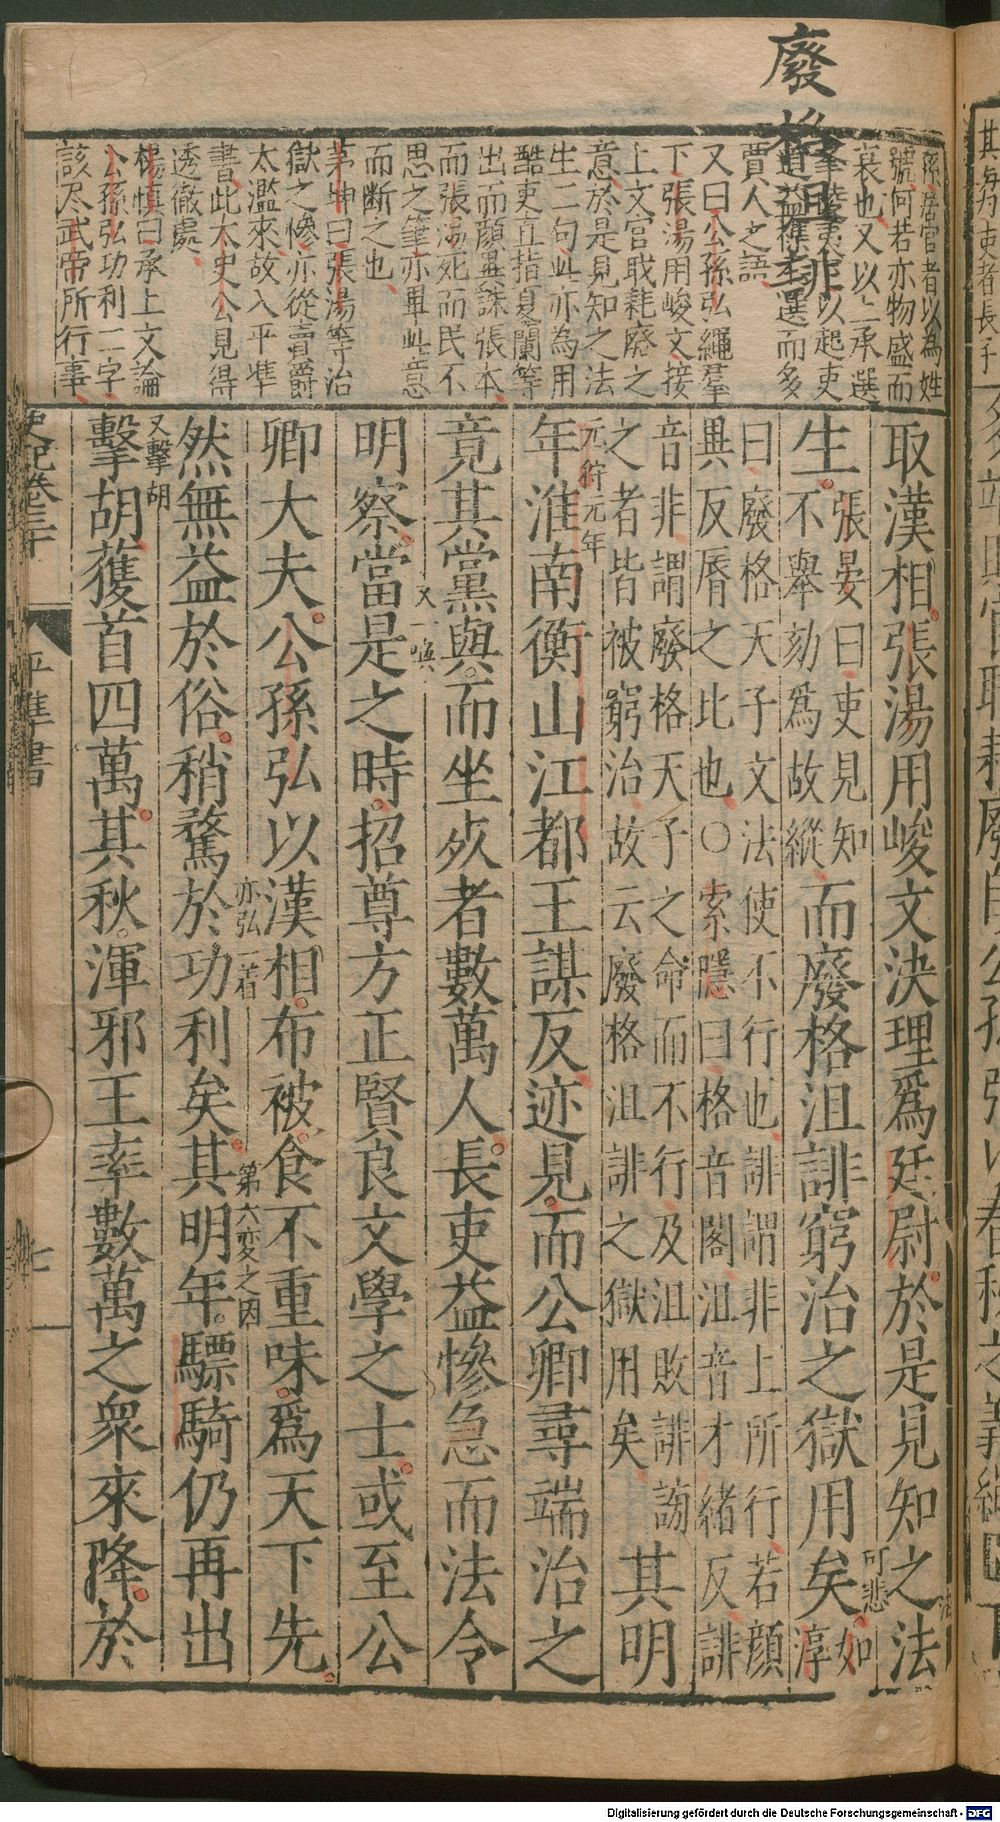 廢格沮誹
孫居官者以為姓
號何若亦物盛而
衰也又以上承選
賈人之語
又曰公孫弘繩羣
下張湯用峻文接
上文官職耗廢之
意於是見知之法
生二句此亦為用
酷吏直指夏蘭等
出而顔異誅張本
而張湯死而民不
思之筆亦畢此意
而斷之也
茅坤曰張湯等治
獄之慘亦從賣爵
太濫來故入平準
書此太史公見得
透徹處
楊慎曰承上文論
公孫弘功利二字
該尽武帝所行事
取漢相張湯用峻文決理爲廷尉於是見知之法
生張晏曰吏見知不舉劾爲故縱而廢格沮誹窮治之獄用矣如淳
可悲
曰廢格天子文法使不行也誹謂非上所行若顔
異反脣之比也○索隱曰格音閣沮音才緒反誹
音非謂廢格天子之命而不行及沮敗誹謗
之者皆被窮治故云廢格沮誹之獄用矣其明
元狩元年
年淮南衡山江都王謀反迹見而公卿尋端治之
竟其黨與而坐死者數萬人長吏益慘急而法令
又一喚
明察當是之時招尊方正賢良文學之士或至公
卿大夫公孫弘以漢相布被食不重味爲天下先
亦弘一着
第六変之因
然無益於俗稍騖於功利矣其明年驃騎仍再出
又擊胡
擊胡獲首四萬其秋渾邪王率數萬之衆來降於
史記卷三十
平準書
七
Digitalisierung gefördert durch die Deutsche Forschungsgemeinschaft - DFG